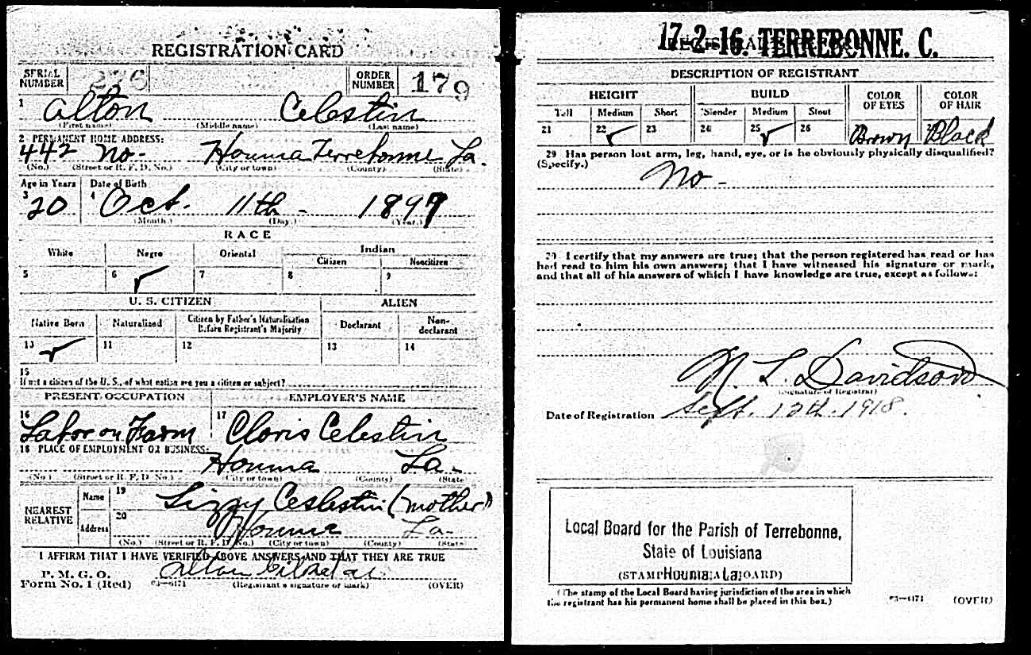 REGISTRATION CARD
SERIAL NUMBER 276 ORDER NUMBER 179
1 Alton Celestin
(First name) (Middle name) (Last name)
2 PERMANENT HOME ADDRESS:
442 No. Houma Terrebonne La.
(No.) (Street or R. F. D. No.) (City or town) (County) (State)
Age in Years Date of Birth
3 20 4 Oct. 11th - 1897
(Month.) (Day.) (Year.)
RACE
White Negro Oriental Indian
Citizen Noncitizen
5 6 ✓ 7 8 9
U. S. CITIZEN ALIEN
Native Born Naturalized Citizen by Father's Naturalization Before Registrant's Majority Declarant Non-declarant
10 ✓ 11 12 13 14
15
If not a citizen of the U. S., of what nation are you a citizen or subject?
PRESENT OCCUPATION EMPLOYER'S NAME
16 Labor on Farm 17 Cloris Celestin
18 PLACE OF EMPLOYMENT OR BUSINESS:
Houma La.
(No.) (Street or R. F. D. No.) (City or town) (County) (State)
NEAREST RELATIVE Name 19 Lizzy Ceslestin (mother)
Address 20 Houma La.
(No.) (Street or R. F. D. No.) (City or town) (County) (State)
I AFFIRM THAT I HAVE VERIFIED ABOVE ANSWERS AND THAT THEY ARE TRUE
P. M. G. O.
Form No. 1 (Red) 03—6171 Alton
(Registrant's signature or mark) (OVER)
17-2-16. TERREBONNE. C.
DESCRIPTION OF REGISTRANT
HEIGHT BUILD COLOR OF EYES COLOR OF HAIR
Tall Medium Short Slender Medium Stout
21 22 ✓ 23 24 25 ✓ 26 Brown Black
29 Has person lost arm, leg, hand, eye, or is he obviously physically disqualified?
(Specify.) No -
30 I certify that my answers are true; that the person registered has read or has
had read to him his own answers; that I have witnessed his signature or mark,
and that all of his answers of which I have knowledge are true, except as follows:
N. L. Davidson
(Signature of Registrar)
Date of Registration Sept. 12th. 1918.
Local Board for the Parish of Terrebonne,
State of Louisiana
(STAMP Houma, La. BOARD)
(The stamp of the Local Board having jurisdiction of the area in which
the registrant has his permanent home shall be placed in this box.)
03—6171 (OVER)